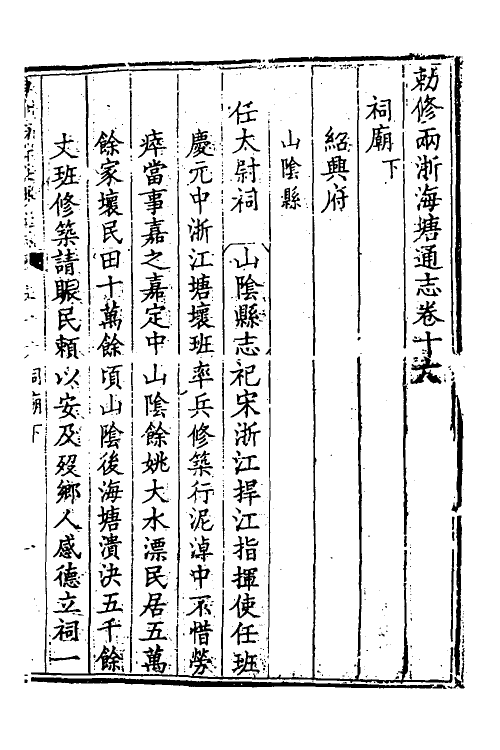 勅修兩浙海塘通志卷十六
祠廟下
紹興府
山陰縣
任太尉祠 山陰縣志祀宋浙江捍江指揮使任班
慶元中浙江塘壞班率兵修築行泥淖中不惜勞
瘁當事嘉之嘉定中山陰餘姚大水漂民居五萬
餘家壞民田十萬餘頃山陰後海塘潰決五千餘
丈班修築請賑民賴以安及歿鄉人感德立祠一
祠廟下
一